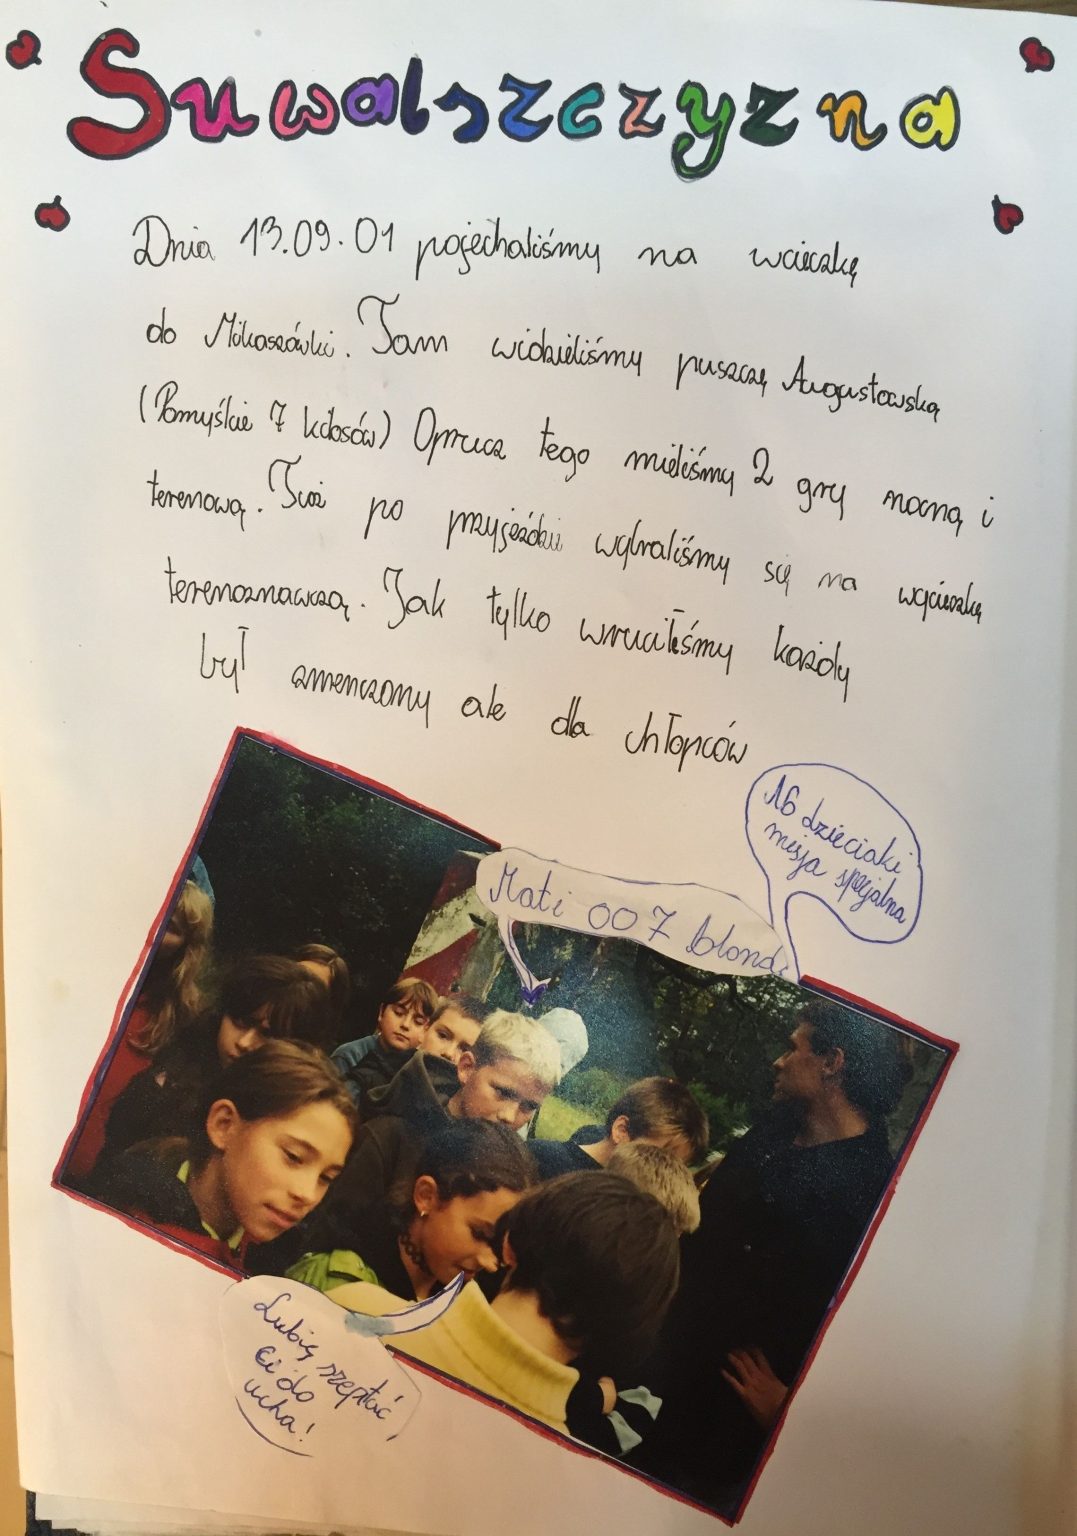 Suwalszczyzna
Dnia 13.09.01 pojechaliśmy na wcieczkę
do Mikaszówki. Tam widzieliśmy puszczę Augustowską
(Pomyślcie 7 kilosów) Oprucz tego mieliśmy 2 gry nocną i
terenową. Tuż po przyjeździe wybraliśmy się na wycieczkę
terenoznawczą. Jak tylko wruciłeśmy każdy
był zmenczony ale dla chłopców
16 dzieciaki
misja specjalna
Mati 007 blond
Lubię szeptać
Ci do
ucha!